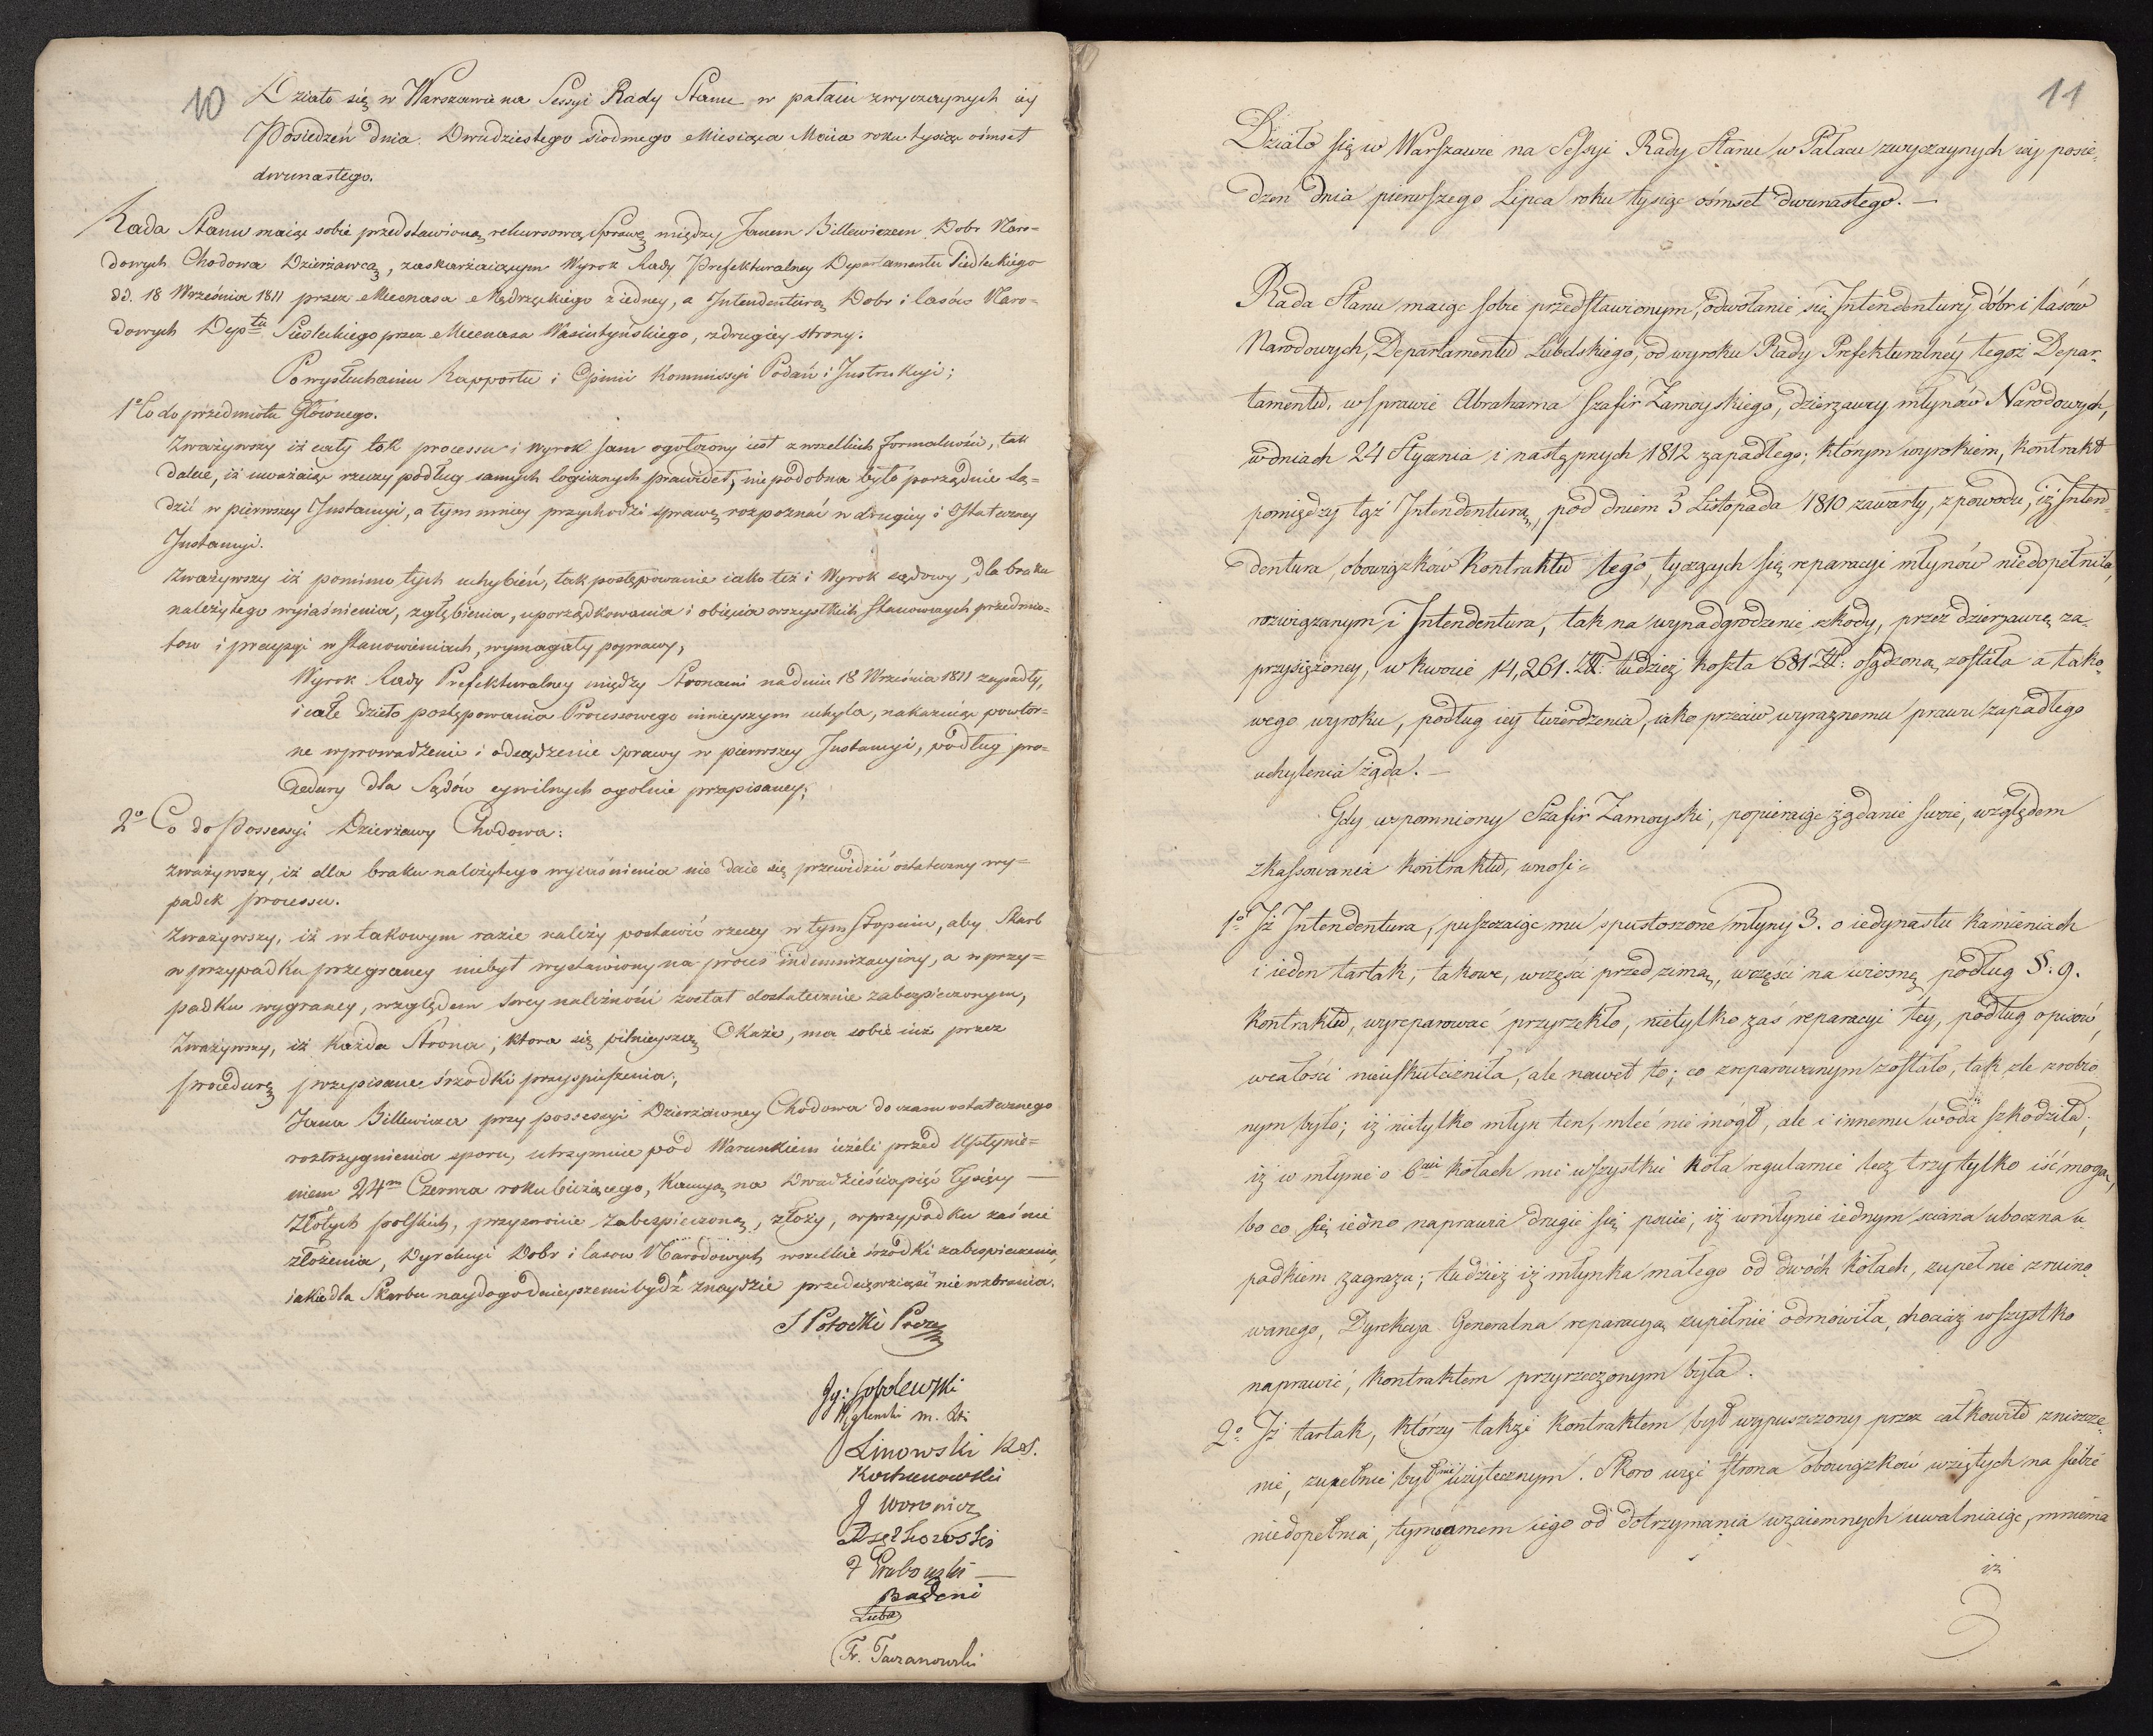 10
Działo się w Warszawie na Sessyi Rady Stanu w pałacu zwyczaynych iey
Posiedzeń dnia Dwudziestego siodmego Miesiąca Maia roku tysiąc ośmset
dwunastego.
Rada Stanu maiąc sobie przedstawioną rekursową Sprawę między Janem Billewiczem Dobr Naro=
dowych Chodowa Dzierżawcą, zaskarżaiącym Wyrok Rady Prefekturalney Departamentu Siedleckiego
dd. 18 Września 1811 przez Mecenasa Mędrzeckiego z iedney, a Intendenturą Dobr i lasów Naro=
dowych Deptu Siedleckiego przez Mecenasa Wasiutyńskiego, z drugiey strony.
Po wysłuchaniu Rapportu i Opinii Kommissyi Podań i Instrukcyi;
1o Co do przedmiotu Głównego.
Zważywszy iż cały tok processu i wyrok sam ogołocony iest z wszelkich formalności, tak
dalece, iż uważaiąc rzeczy podług samych logicznych prawideł, niepodobna było porządnie są=
dzić w pierwszey Instancyi, a tym mniey przychodzi sprawę rozpoznać w drugiey i ostateczney
Instancyi.
Zważywszy iż pomimo tych uchybień, tak postępowanie iako też i Wyrok sądowy, dla braku
należytego wyiaśnienia, zgłębienia, uporządkowania i obięcia wszystkich stanowczych przedmio=
tow i precyzyi w stanowieniach, wymagały poprawy,
Wyrok Rady Prefekturalney między Stronami na dniu 18 Września 1811 zapadły,
i całe dzieło postępowania Processowego ninieyszym uchyla, nakazuiąc powtor=
ne wprowadzenie i odsądzenie sprawy w pierwszey Instancyi, podług pro=
cedury dla Sądów cywilnych ogolnie przepisaney;
2o Co do Possessyi Dzierżawy Chodowa:
Zważywszy, iż dla braku należytego wyiaśnienia nie daie się przewidzić ostateczny wy=
padek processu.
Zważywszy, iż w takowym razie należy postawić rzeczy w tym Stopniu, aby Skarb
w przypadku przegraney niebył wystawiony na proces indemnizacyiny, a w przy=
padku wygraney, względem swey należności został dostatecznie zabezpieczonym,
Zważywszy, iż Każda Strona, ktora się pilnieyszą Okaże, ma sobie iuż przez
procedurę przepisane śrzodki przyspieszenia;
Jana Billewicza przy possessyi Dzierżawney Chodowa do czasu ostatecznego
roztrzygnienia sporu, utrzymuie pod Warunkiem ieżeli przed Upłynie=
niem 24m Czerwca roku bieżącego, Kaucyą na Dwadzieściapięć Tysięcy —
Złotych polskich, przyzwoicie zabezpieczoną, złoży, w przypadku zaś nie
złożenia, Dyrekcyi Dobr i lasow Narodowych wszelkie śrzodki zabespieczenia,
iakie dla Skarbu naydogodnieyszemi bydź znaydzie przedsięwziąść nie wzbrania.
S Potocki Prezes
Ig: Sobolewski
Węglenski m. 
Linowski R.S.
Kochanowski
J Woronicz
F Grabowski —
Badeni
Luba
Fr. Tarzanowski
11
Działo się w Warszawie na Sessyi Rady Stanu w Pałacu zwyczaynych iey posie=
dzen dnia pierwszego Lipca roku tysiąc ośmset dwunastego. —
Rada Stanu maiąc sobie przedstawionym, odwołanie się Intendentury dóbr i lasów
Narodowych, Departamentu Lubelskiego, od wyroku Rady Prefekturalney tegoż Depar=
tamentu, w sprawie Abrahama Szafir Zamoyskiego, dzierzawcy młynów Narodowych,
w dniach 24 Stycznia i następnych 1812 zapadłego; którym wyrokiem, kontrakt
pomiędzy tąż Intendenturą, pod dniem 3 Listopada 1810 zawarty, z powodu, iż Inten=
dentura, obowiązków kontraktu tego, tyczących się reparacyi młynów niedopełniła,
rozwiązanym, i Intendentura, tak na wynadgrodzenie szkody, przez dzierzawcę za=
przysiężoney, w kwocie 14,261. Zł: tudzież koszta 681 Zł: osądzoną została a tako=
wego wyroku, podług iey twierdzenia, iako przeciw wyraznemu prawu zapadłego
uchylenia żąda. —
Gdy wspomniony Szafir Zamoyski, popieraiąc żądanie swoie, względem
skassowania kontraktu, wnosi=
1o Iż Intendentura, puszczaiąc mu spustoszone młyny 3. o iedynastu kamieniach
i ieden tartak, takowe, w części przed zimą, w części na wiosnę podług §. 9.
kontraktu, wyreparować przyrzekło, nietylko zaś reparacyi tey, podług opisów,
w całości nieuskuteczniła, ale nawet to, co zreparowanym zostało, tak zle zrobio=
nym było; iż nietylko młyn ten, mleć nie mógł, ale i innemu woda szkodziła;
iż w młynie o 6ciu kołach nie wszystkie koła regularnie lecz trzy tylko iść mogą,
bo co się iedno naprawia drugie się psuie, iż w młynie iednym sciana uboczna u=
padkiem zagraza; tudzież iż młynka małego od dwóch kołach, zupełnie zruino=
wanego, Dyrekcya Generalna reparacyą zupełnie odmówiła, chociaż wszystko
naprawić, kontraktem przyrzeczonym było.
2o Iż tartak, który także kontraktem był wypuszczony przez całkowite zniszcze=
nie, zupełnie był nieużytecznym. Skoro więc strona obowiązków wziętych na siebie
niedopełnia, tymsamem iego od dotrzymania wzaiemnych uwalniaiąc, mniema
iż